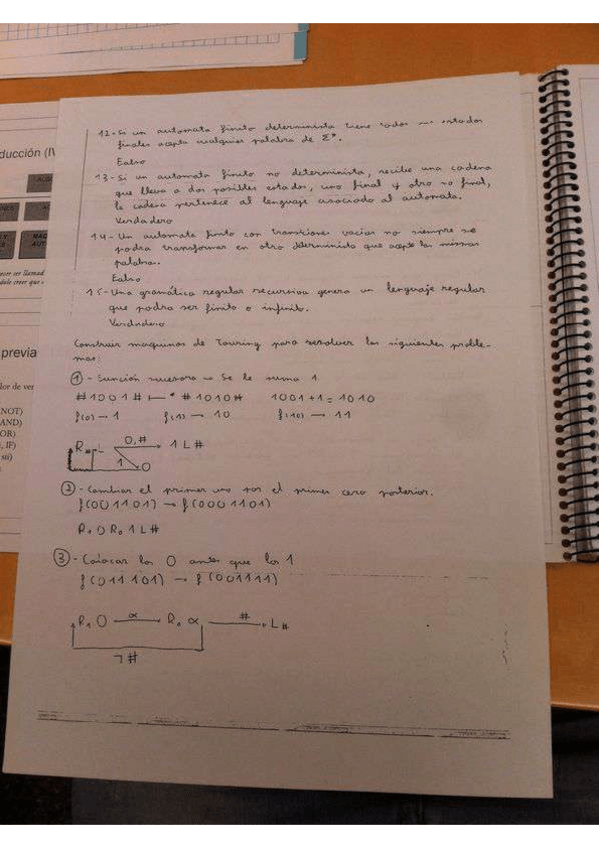 12- Si un automata finito determinista tiene todos sus estados
finales acepta cualquier palabra de Σ*.
Falso
13- Si un automata finito no determinista, recibe una cadena
que lleva a dos posibles estados, uno final y otro no final,
la cadena pertenece al lenguaje asociado al automata.
Verdadero
14- Un automata finito con transiciones vacias no siempre se
podra transformar en otro determinista que acepte las mismas
palabras.
Falso
15- Una gramática regular recursiva genera un lenguaje regular
que podra ser finito o infinito.
Verdadero
Construir maquinas de Touring para resolver los siguientes proble-
mas:
① - Función sucesora → Se le suma 1
#1001# ⊢* #1010# 1001 + 1 = 1010
f(0) → 1 f(1) → 10 f(10) → 11
0,# 1 L#
1 0
② - Cambiar el primer uno por el primer cero posterior.
f(001101) → f(0001101)
0 1 L#
③ - Colocar los 0 antes que los 1
f(011101) → f(001111)
R₁ 0 α R₀ α # L#
¬#
ducción (I
previa
lor de ver
NOT)
AND)
OR)
, IF)
sii)